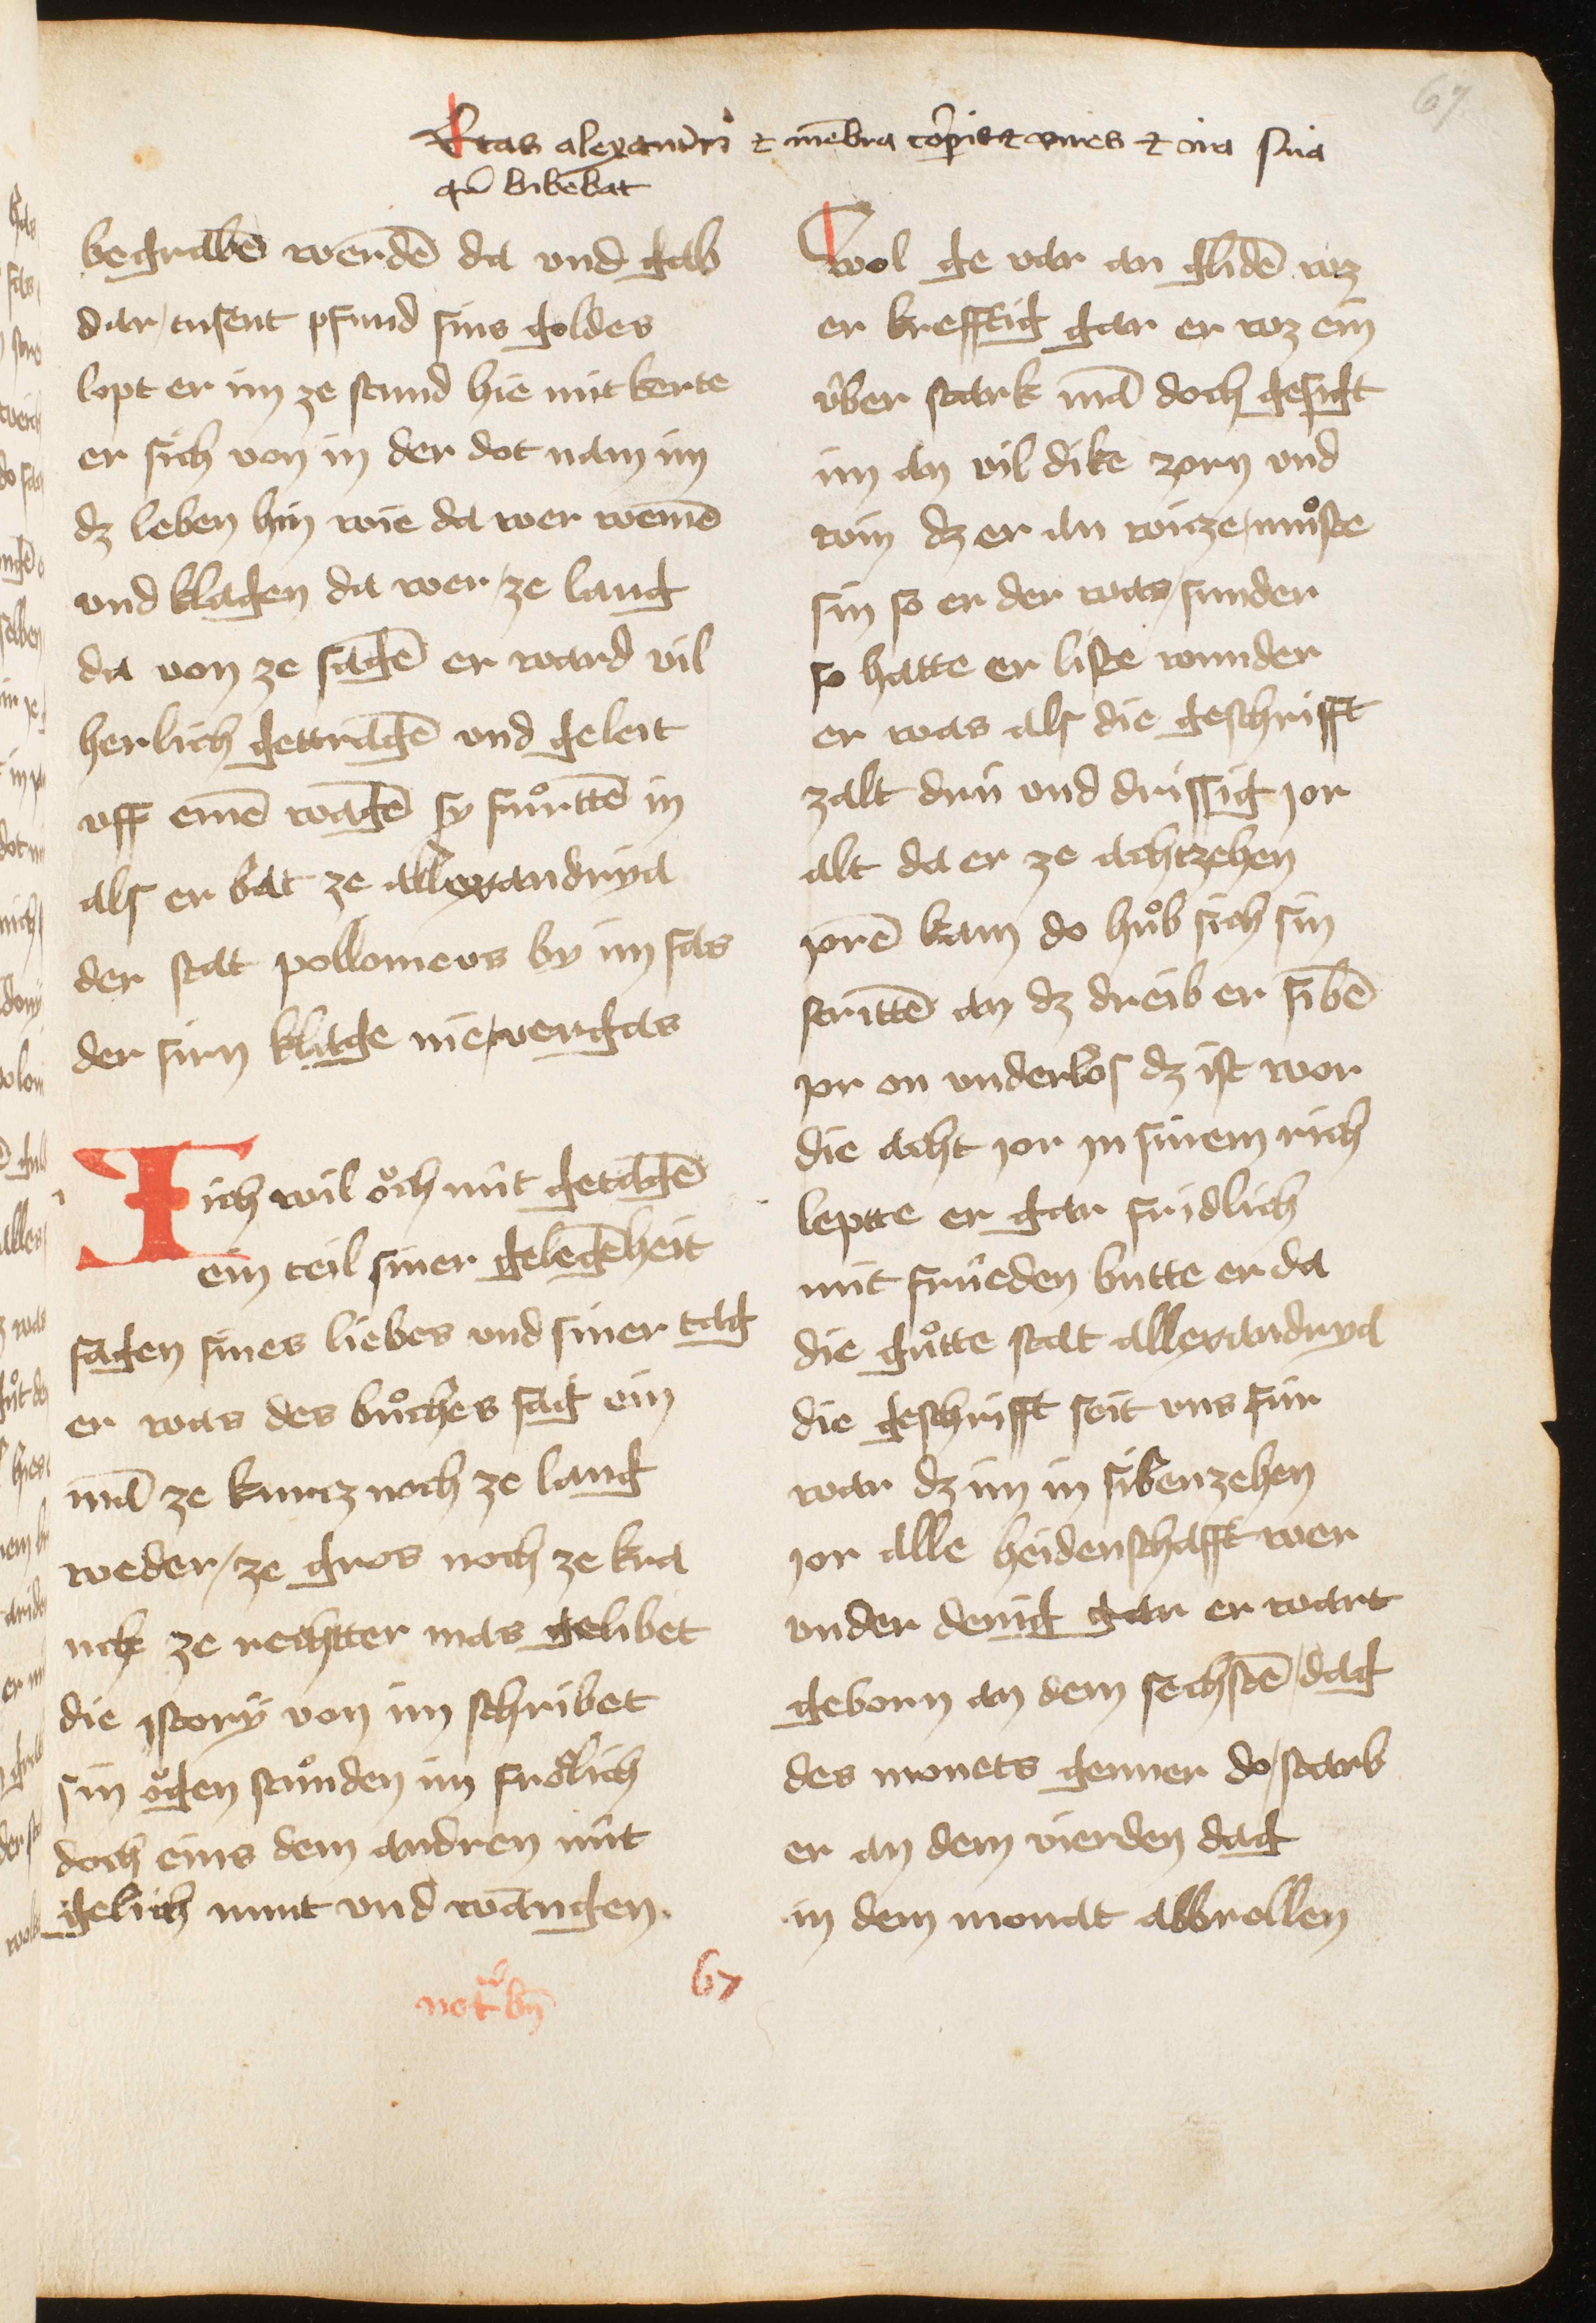 67
Etas alexandri et mēbra corpis et vires et ira sua
qn̄ bibebat
begrabē werdē da vnd gab
dar tusent pfund sins goldes
lopt er im ze stund hie mit kerte
er sich von in der dot nam im
dz leben hin wie da wer weinē
vnd klagen da wer ze lang
da von ze sagē er ward vil
herlich gettragē vnd geleit
vff einē wagē sy fuͦrttē in
als er bat ze allexandrya
der stat pollomeus by im sas
der sin klage nie vergas
ich wil oͧch nit getagē
ein teil siner gelegēheit
sagen sines liebes vnd siner tag
er was des buͦches sag ein
mā ze kurcz noch ze lang
weder ze gros noch ze kra
nck ze rechtter mas gelibet
die jstory von im schribet
sin oͧgen stuͦnden im froͤlich
doch eins dem andren nit
gelich munt vnd wangen
not bn̄
67
Wol ge var an glidē wz
er krefftig gar er wz ein
v̈ber stark mā doch gesigt
im an vil dike zorn vnd
win dz er an wicze muͦste
sin so er der was sunder
so hatte er liste wunder
er was als die geschrifft
zalt dru vnd drissig jor
alt da er ze achtzehen
jorē kam do huͦb sich sin
strittē an dz dreib er sibē
jor on vnderlos dz ist wor
die acht jor jn sinem rich
leptte er gar fridlich
mit froͤeden butte er da
die guͦtte stat allexandrya
die geschrifft seit vns fúr
war dz im in sibenzehen
jor alle heidenschafft wer
vnder denig gar er wart
geborn an dem sechstē dag
des monets genner do starb
er an dem vierden dag
in dem monat abbrellen